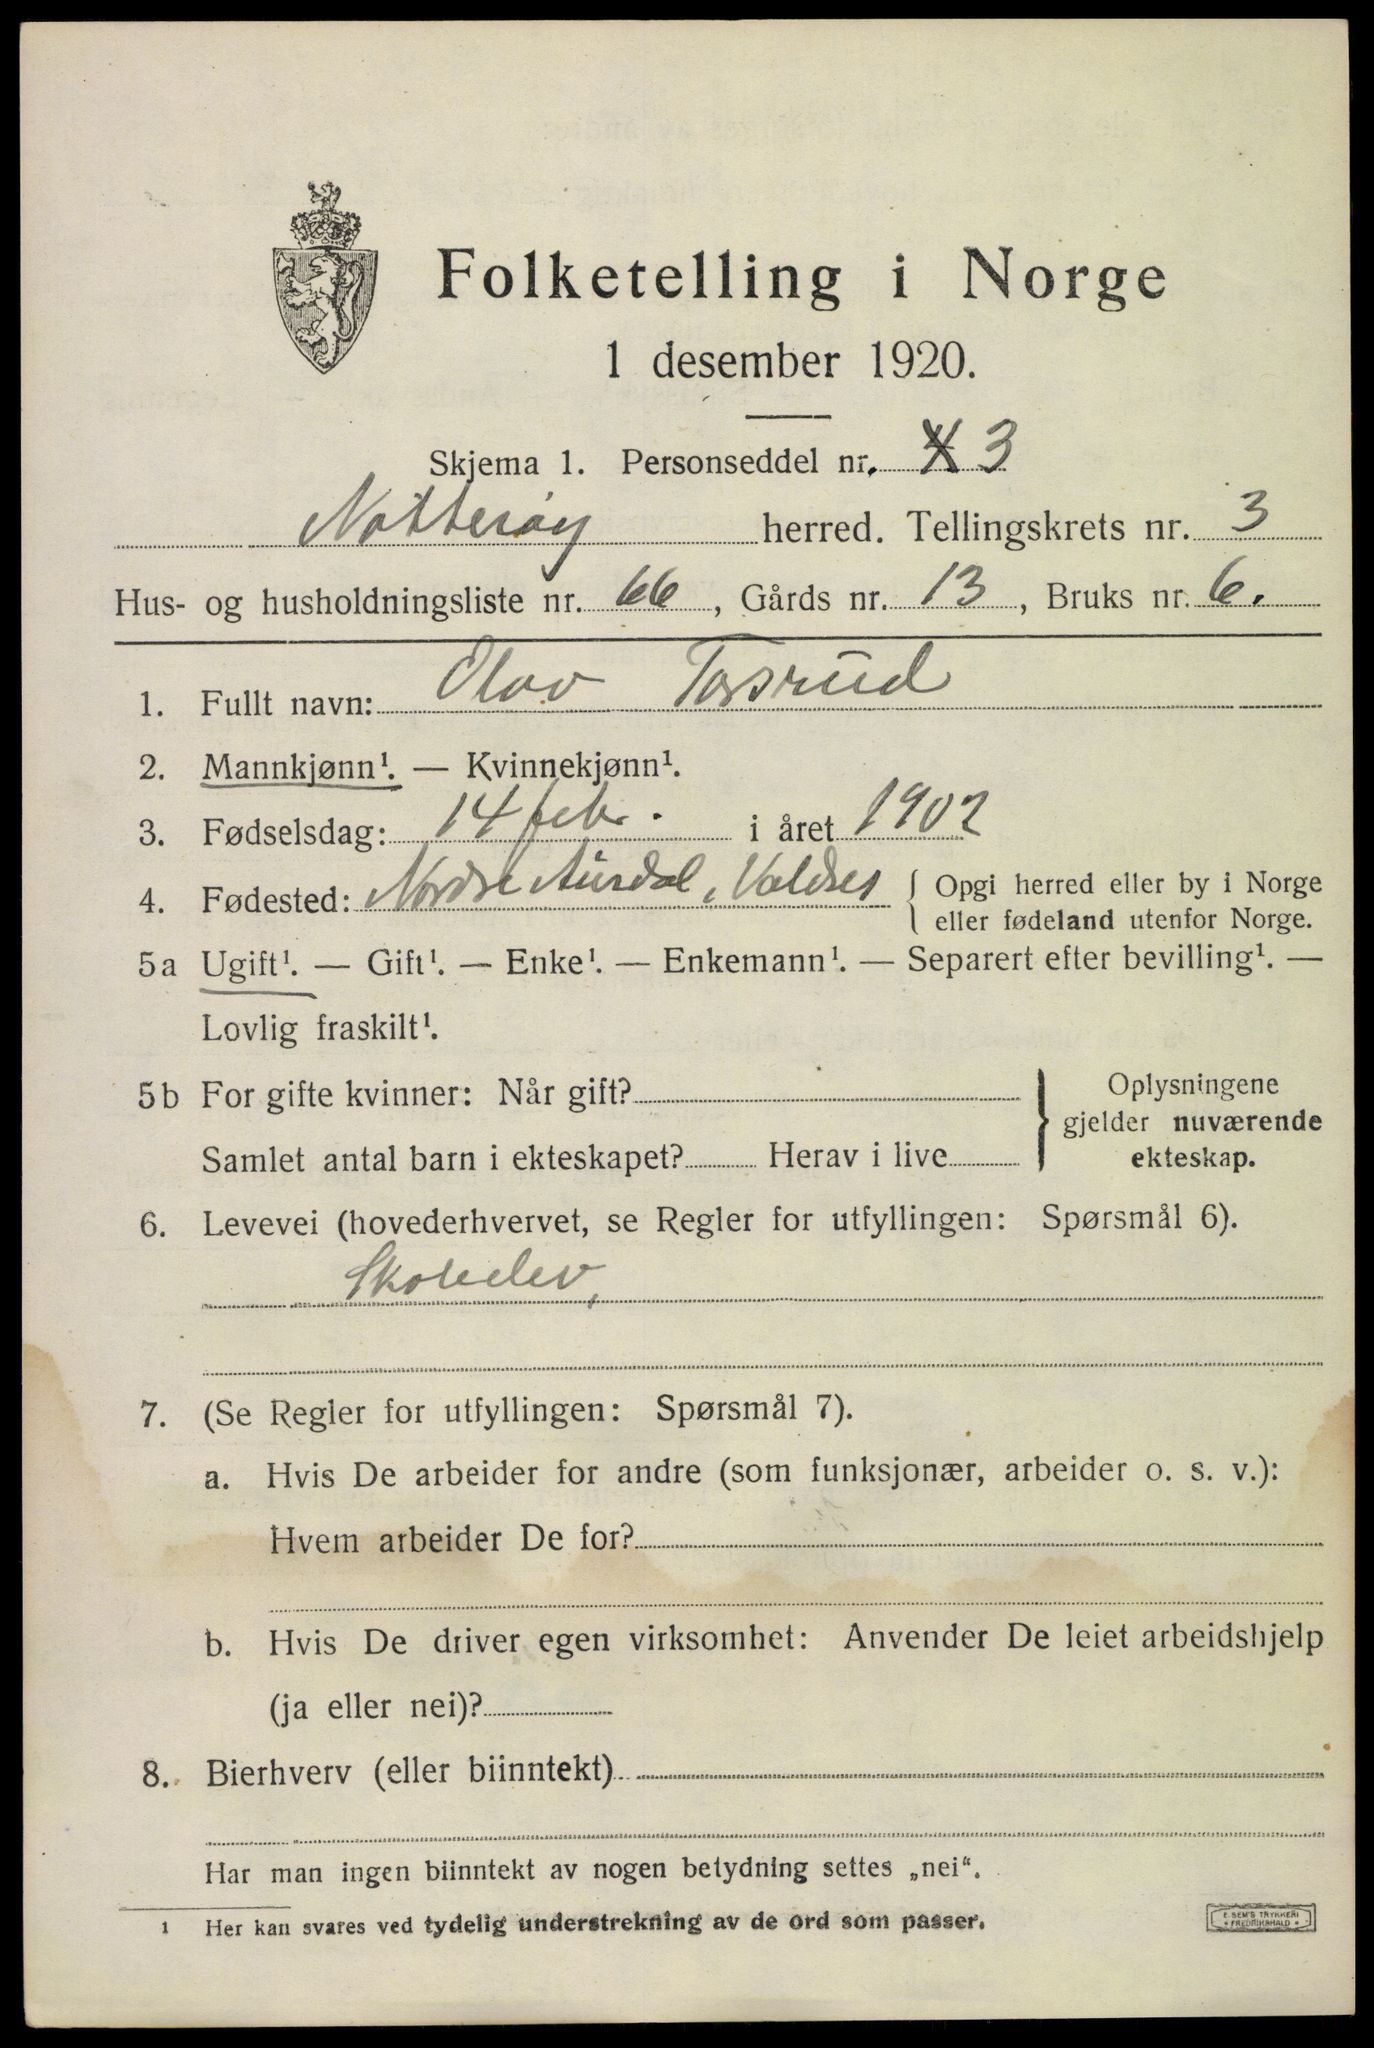 Folketelling i Norge
1 desember 1920.
Skjema 1. Personseddel nr. 3
Nøtterøy herred. Tellingskrets nr. 3
Hus- og husholdningsliste nr. 66, Gårds nr. 13, Bruks nr. 6.
1. Fullt navn: Olav Torsrud
2. Mannkjønn¹. — Kvinnekjønn¹.
3. Fødselsdag: 14 febr. i året 1902
4. Fødested: Nordre Aurdal, Valdres { Opgi herred eller by i Norge
eller fødeland utenfor Norge.
5a Ugift¹. — Gift¹. — Enke¹. — Enkemann¹. — Separert efter bevilling¹. —
Lovlig fraskilt¹.
5b For gifte kvinner: Når gift? } Oplysningene
gjelder nuværende
Samlet antal barn i ekteskapet? Herav i live ekteskap.
6. Levevei (hovederhvervet, se Regler for utfyllingen: Spørsmål 6).
Skoleelev,
7. (Se Regler for utfyllingen: Spørsmål 7).
a. Hvis De arbeider for andre (som funksjonær, arbeider o. s. v.):
Hvem arbeider De for?
b. Hvis De driver egen virksomhet: Anvender De leiet arbeidshjelp
(ja eller nei)?
8. Bierhverv (eller biinntekt)
Har man ingen biinntekt av nogen betydning settes „nei“.
1 Her kan svares ved tydelig understrekning av de ord som passer.
E. SEM'S TRYKKERI
FREDRIKSHALD